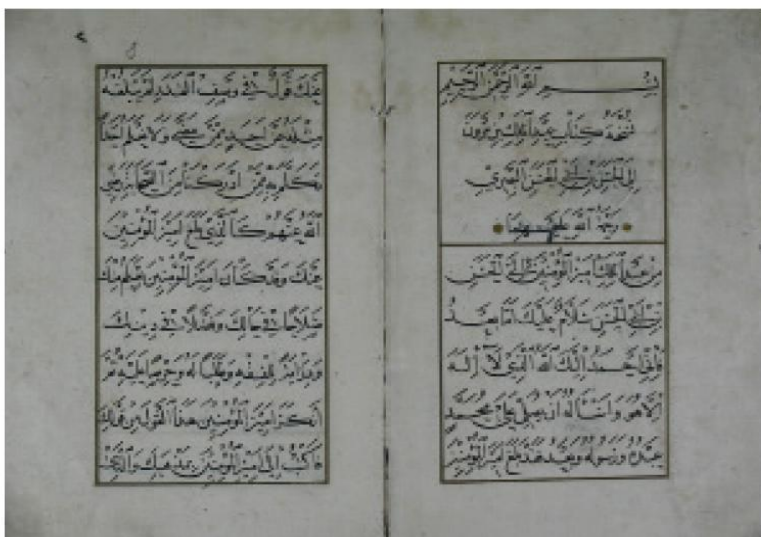 بسم الله الرحمن الرحيم
نسخة كتاب عبد الملك بن مرون
الى الحسن بن ابي الحسن البصري
رحمة الله عليهما
من عبد الملك امير المؤمنين الى الحسن
بن ابي الحسن سلام عليك اما بعد
فاني احمد اليك الله الذي لا اله
الا هو واسأله ان يصلي على محمد
عبده ورسوله وبعد فقد بلغ امير المؤمنين
عنك قول في وصف القدر لم يبلغه
مثله عن احد ممن مضى ولا نعلم احدا
تكلم به ممن ادركنا من الصحابة رضي
الله عنهم كالذي بلغ امير المؤمنين
عنك وقد كان امير المؤمنين يعلم منك
صلاحا في حالك وفضلا في دينك
ودراية للفقه وطلبا له وحرصا عليه ثم
انكر امير المؤمنين هذا القول من قولك
فاكتب الى امير المؤمنين بمذهبك والذي